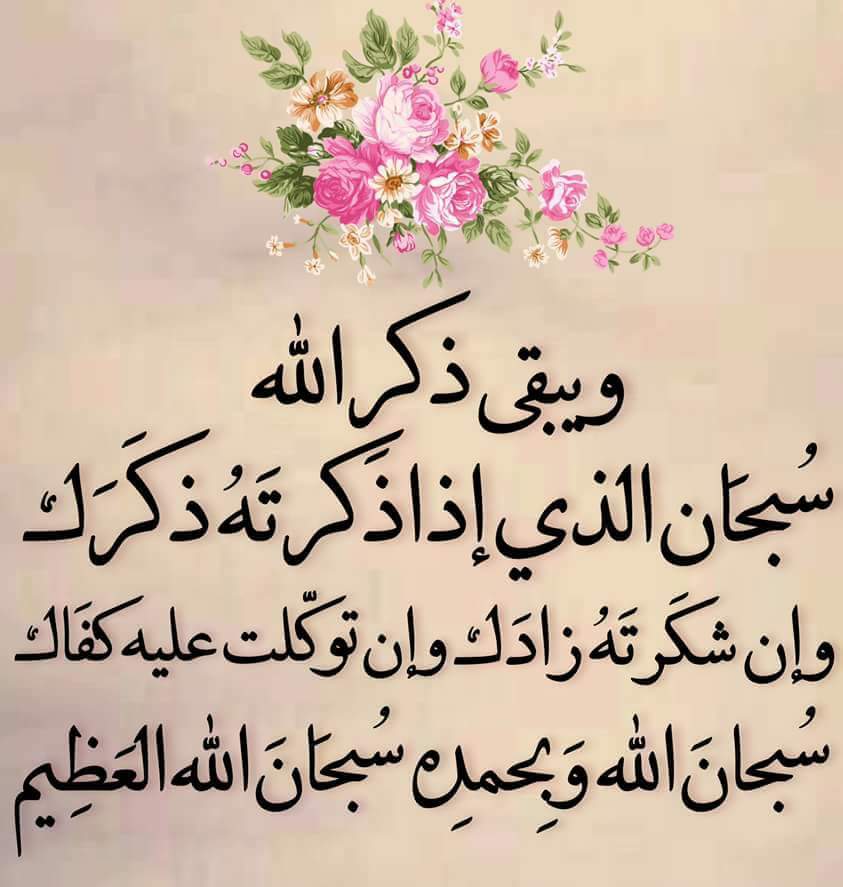 ويبقى ذكر الله
سُبحَان الذي إذا ذَكرتَهُ ذكَرَك
وإن شكَرتَهُ زادَك وإن توكّلت عليه كفَاك
سُبحانَ الله وَبِحمدِه سُبحَانَ الله العَظِيم